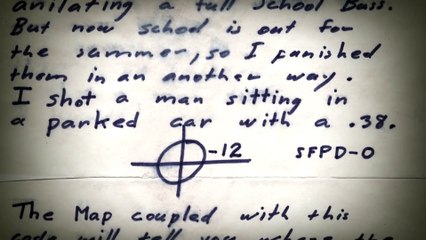 anilating a full School Buss.
But now school is out for
the summer, so I punished
them in an another way.
I shot a man sitting in
a parked car with a .38.
-12 SFPD-0
The Map coupled with this
code will tell you where the